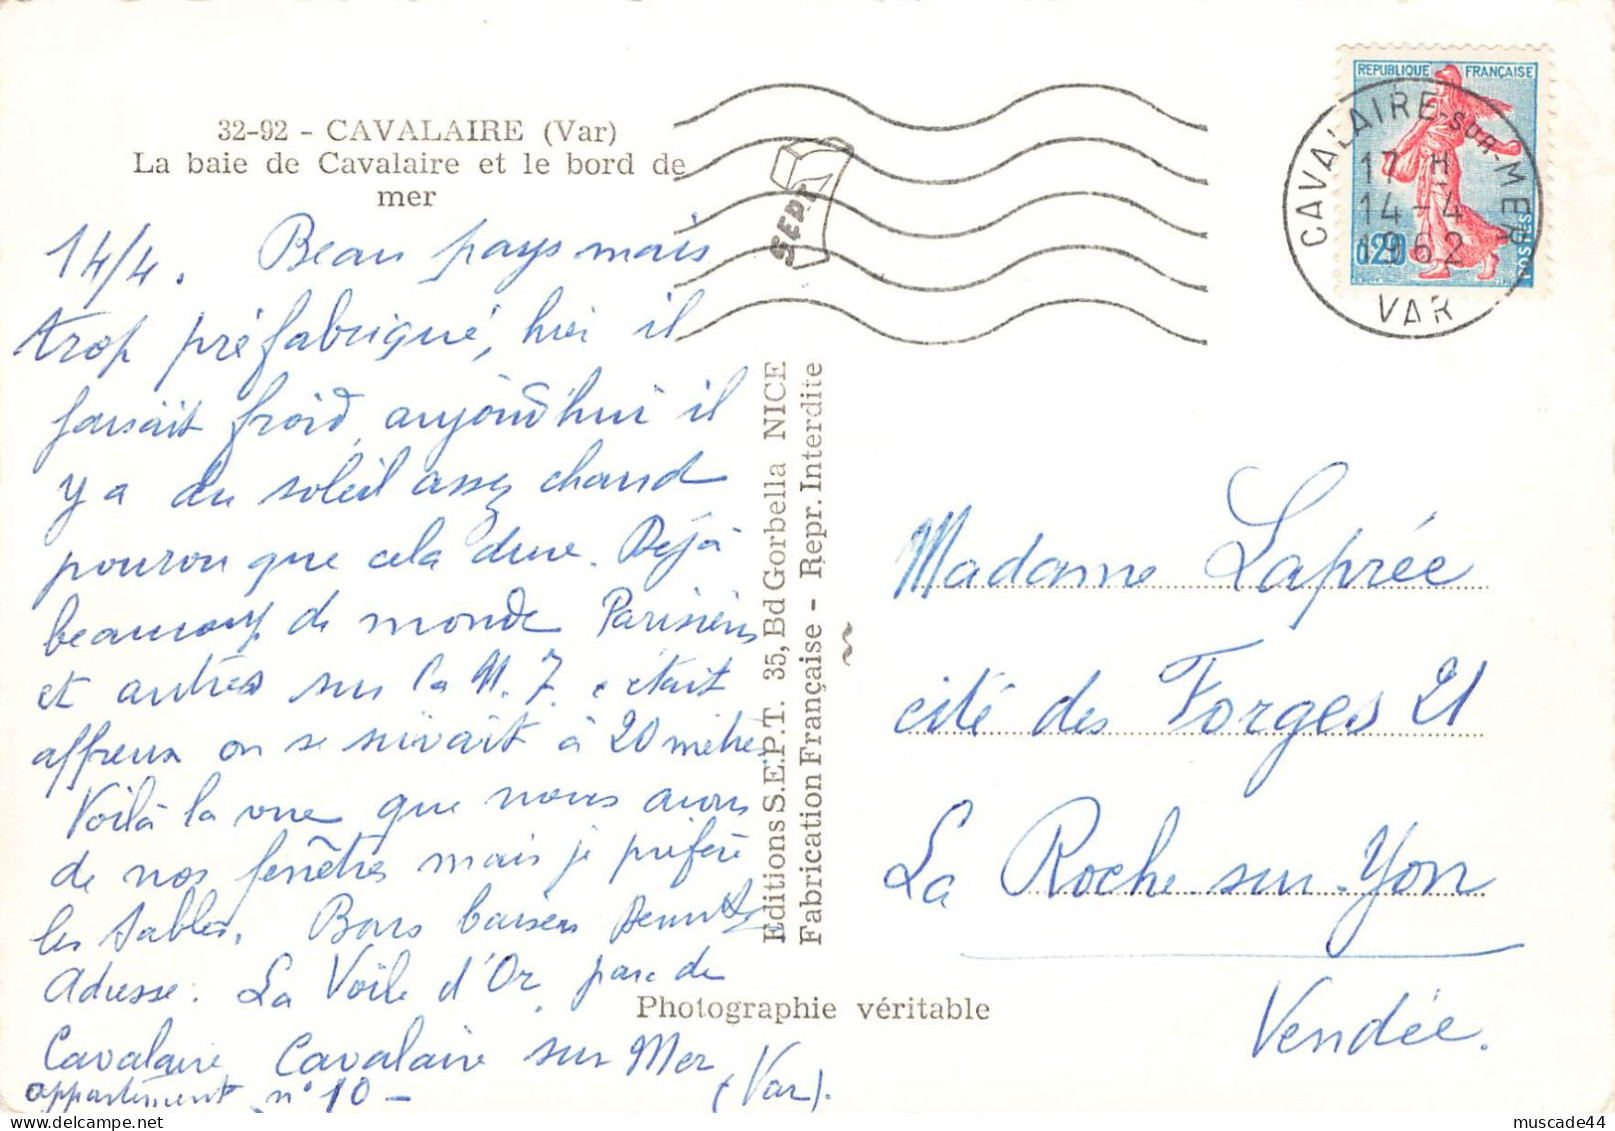 32-92 - CAVALAIRE (Var)
La baie de Cavalaire et le bord de
mer
14/4. Beau pays mais
trop préfabriqué, hier il
faisait froid, aujourd'hui il
y a du soleil assez chaud
pourvu que cela dure. Déjà
beaucoup de monde Parisiens
et autres sur la N. 7. c'était
affreux on se suivait à 20 mètres
Voilà la vue que nous avons
de nos fenêtres mais je préfère
les Sables. Bons baisers
Adresse : La Voile d'Or, parc de
Cavalaire Cavalaire sur Mer
appartement n° 10 - (Var).
Editions S.E.P.T. 35, Bd Gorbella NICE
Fabrication Française - Repr. Interdite
Photographie véritable
SEPT
REPUBLIQUE FRANÇAISE
0,20
POSTES
CAVALAIRE-SUR-MER
17 H
14-4
1962
VAR
Madame Laprée
cité des Forges 21
La Roche-sur-Yon
Vendée.
muscade44